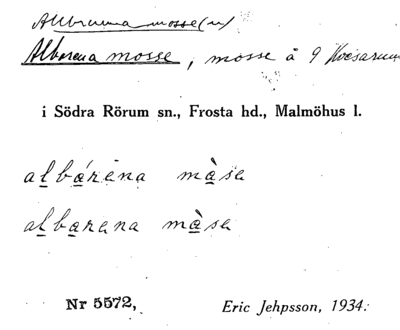 Allbruna mosse(n)
Alborena mosse, mosse å 9
i Södra Rörum sn., Frosta hd., Malmöhus l.
albárena màse
albarena màse
Nr 5572, Eric Jehpsson, 1934.